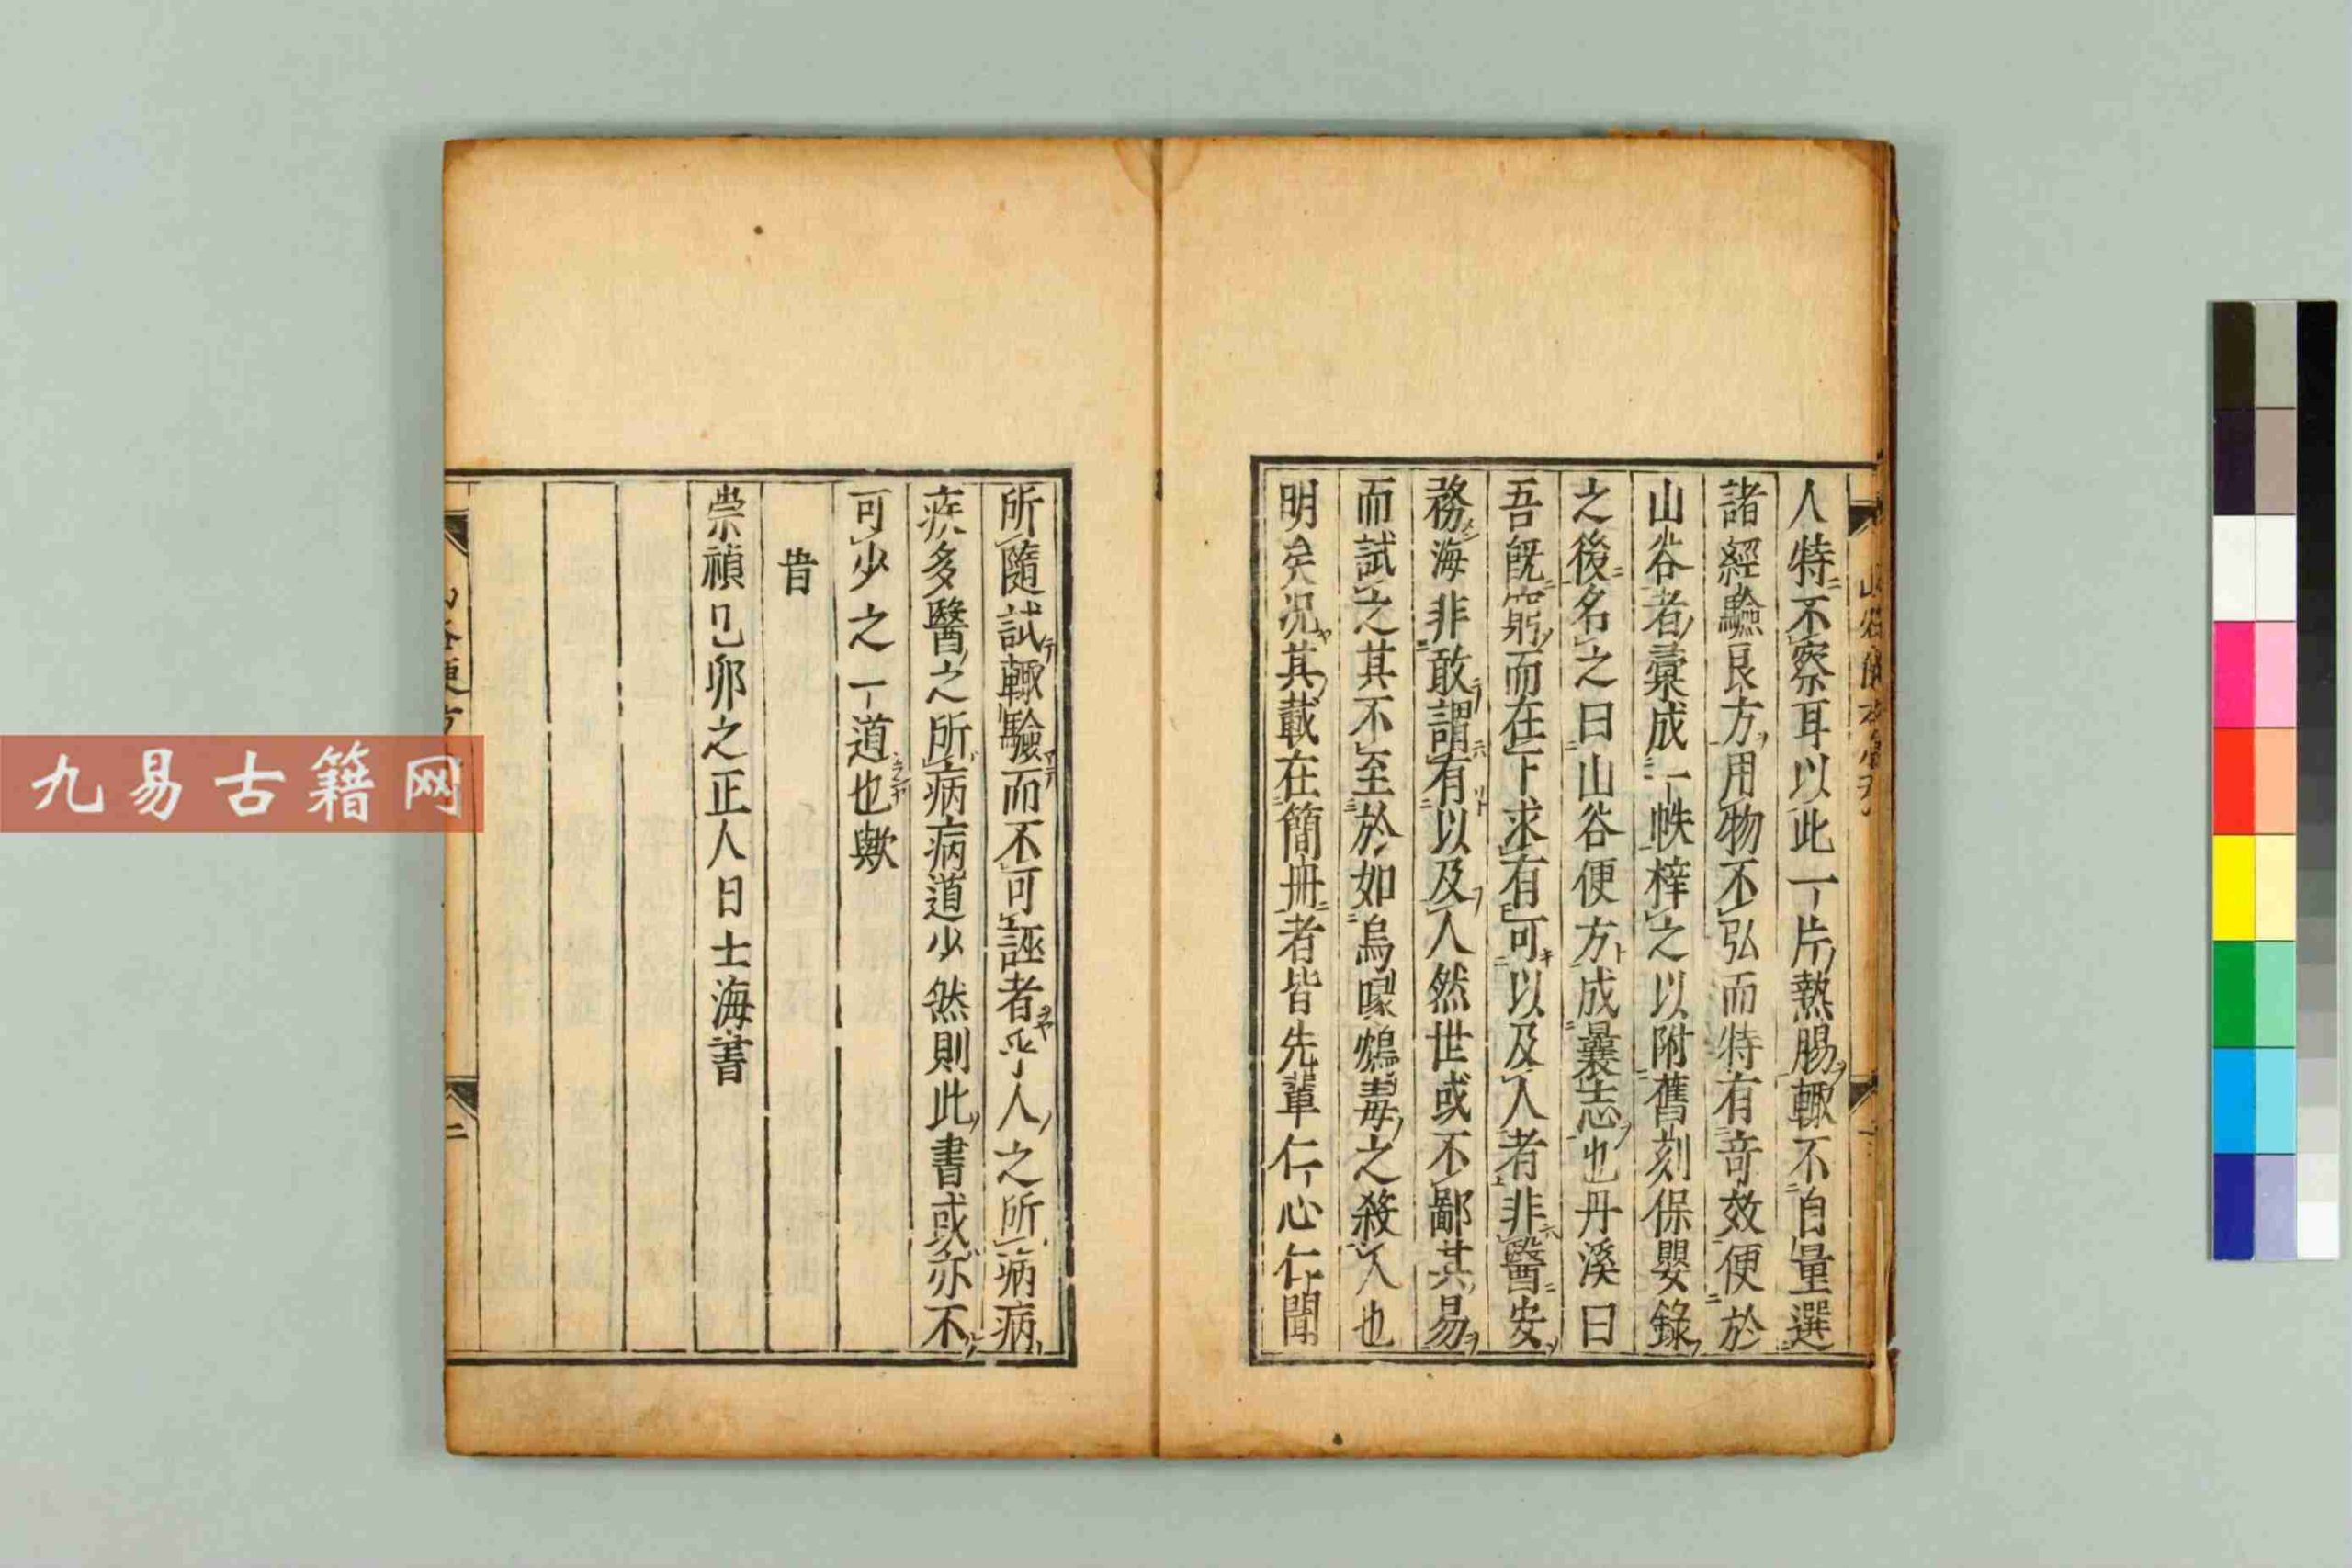 人特不察耳以此一片熱腸輙不自量選
諸經驗良方用物不弘而特有竒效便於
山谷者彚成一帙梓之以附舊刻保嬰錄
之後名之曰山谷便方成曩志也丹溪曰
吾旣窮而在下求有可以及人者非醫安
務海非敢謂有以及人然世或不鄙其易
而試之其不至於如烏喙鴆毒之殺人也
明矣况其載在簡冊者皆先軰仁心仁聞
所隨試輙驗而不可誣者乎人之所病病
疾多醫之所病病道少然則此書或亦不
可少之一道也歟
旹
崇禎己卯之正人日士海書
二
九易古籍网